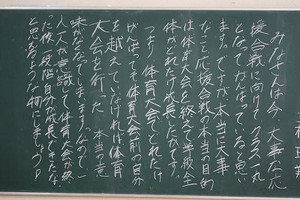 みなさんは今、大事な応
援合戦に向けてクラス一丸
となってがんばっていると思い
ます。ですが本当に大事
なこと応援合戦の本当の目的
は体育大会を終えて、学校全
体がどれだけ成長したかです。
つまり体育大会でどれだけ
がんばっても体育大会前の自分
を越えていなければ体育
大会を行った本当の意
味がなくなってしまいます。なので一
人一人が意識して体育大会が終
った後、役割自分が成長できたな。
と思えるような物にしましょう。